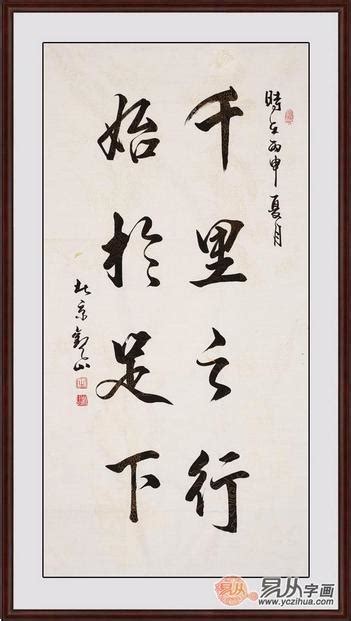 時在丙申夏月
千里之行
始於足下
於京觀山
易从字画
www.yczihua.com